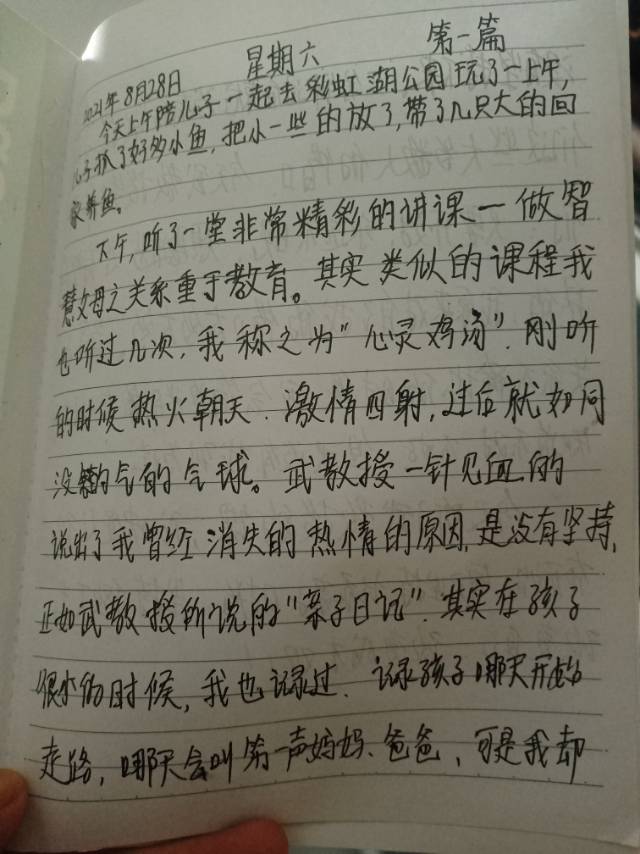 2021年8月28日 星期六 第一篇
今天上午陪儿子一起去彩虹湖公园玩了一上午,
儿子抓了好多小鱼,把小一些的放了,带了几只大的回
家养鱼。
下午,听了一堂非常精彩的讲课一做智
慧父母之关系重于教育。其实类似的课程我
也听过几次,我称之为"心灵鸡汤".刚听
的时候热火朝天.激情四射,过后就如同
没气的气球。武教授一针见血的
说出了我曾经消失的热情的原因,是没有坚持,
正如武教授所说的"亲子日记".其实在孩子
很小的时候,我也记录过.记录孩子哪天开始
走路,哪天会叫第一声妈妈、爸爸,可是我却